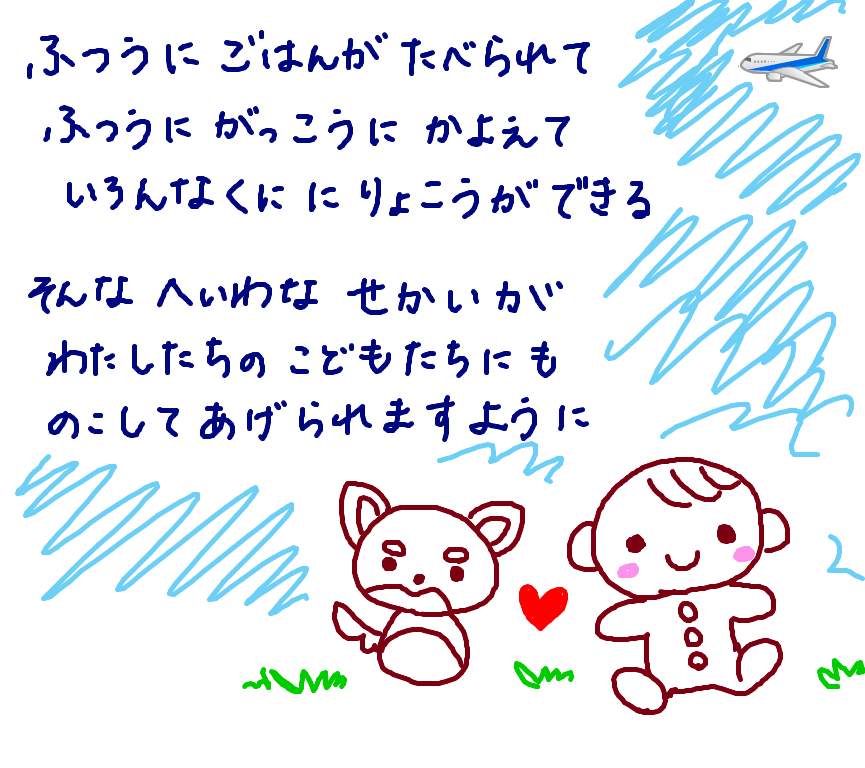 ふつうに ごはんが たべられて
ふつうに がっこうに かよえて
いろんなくに に りょこうができる
そんな へいわな せかいが
わたしたちの こどもたちにも
のこして あげられますように